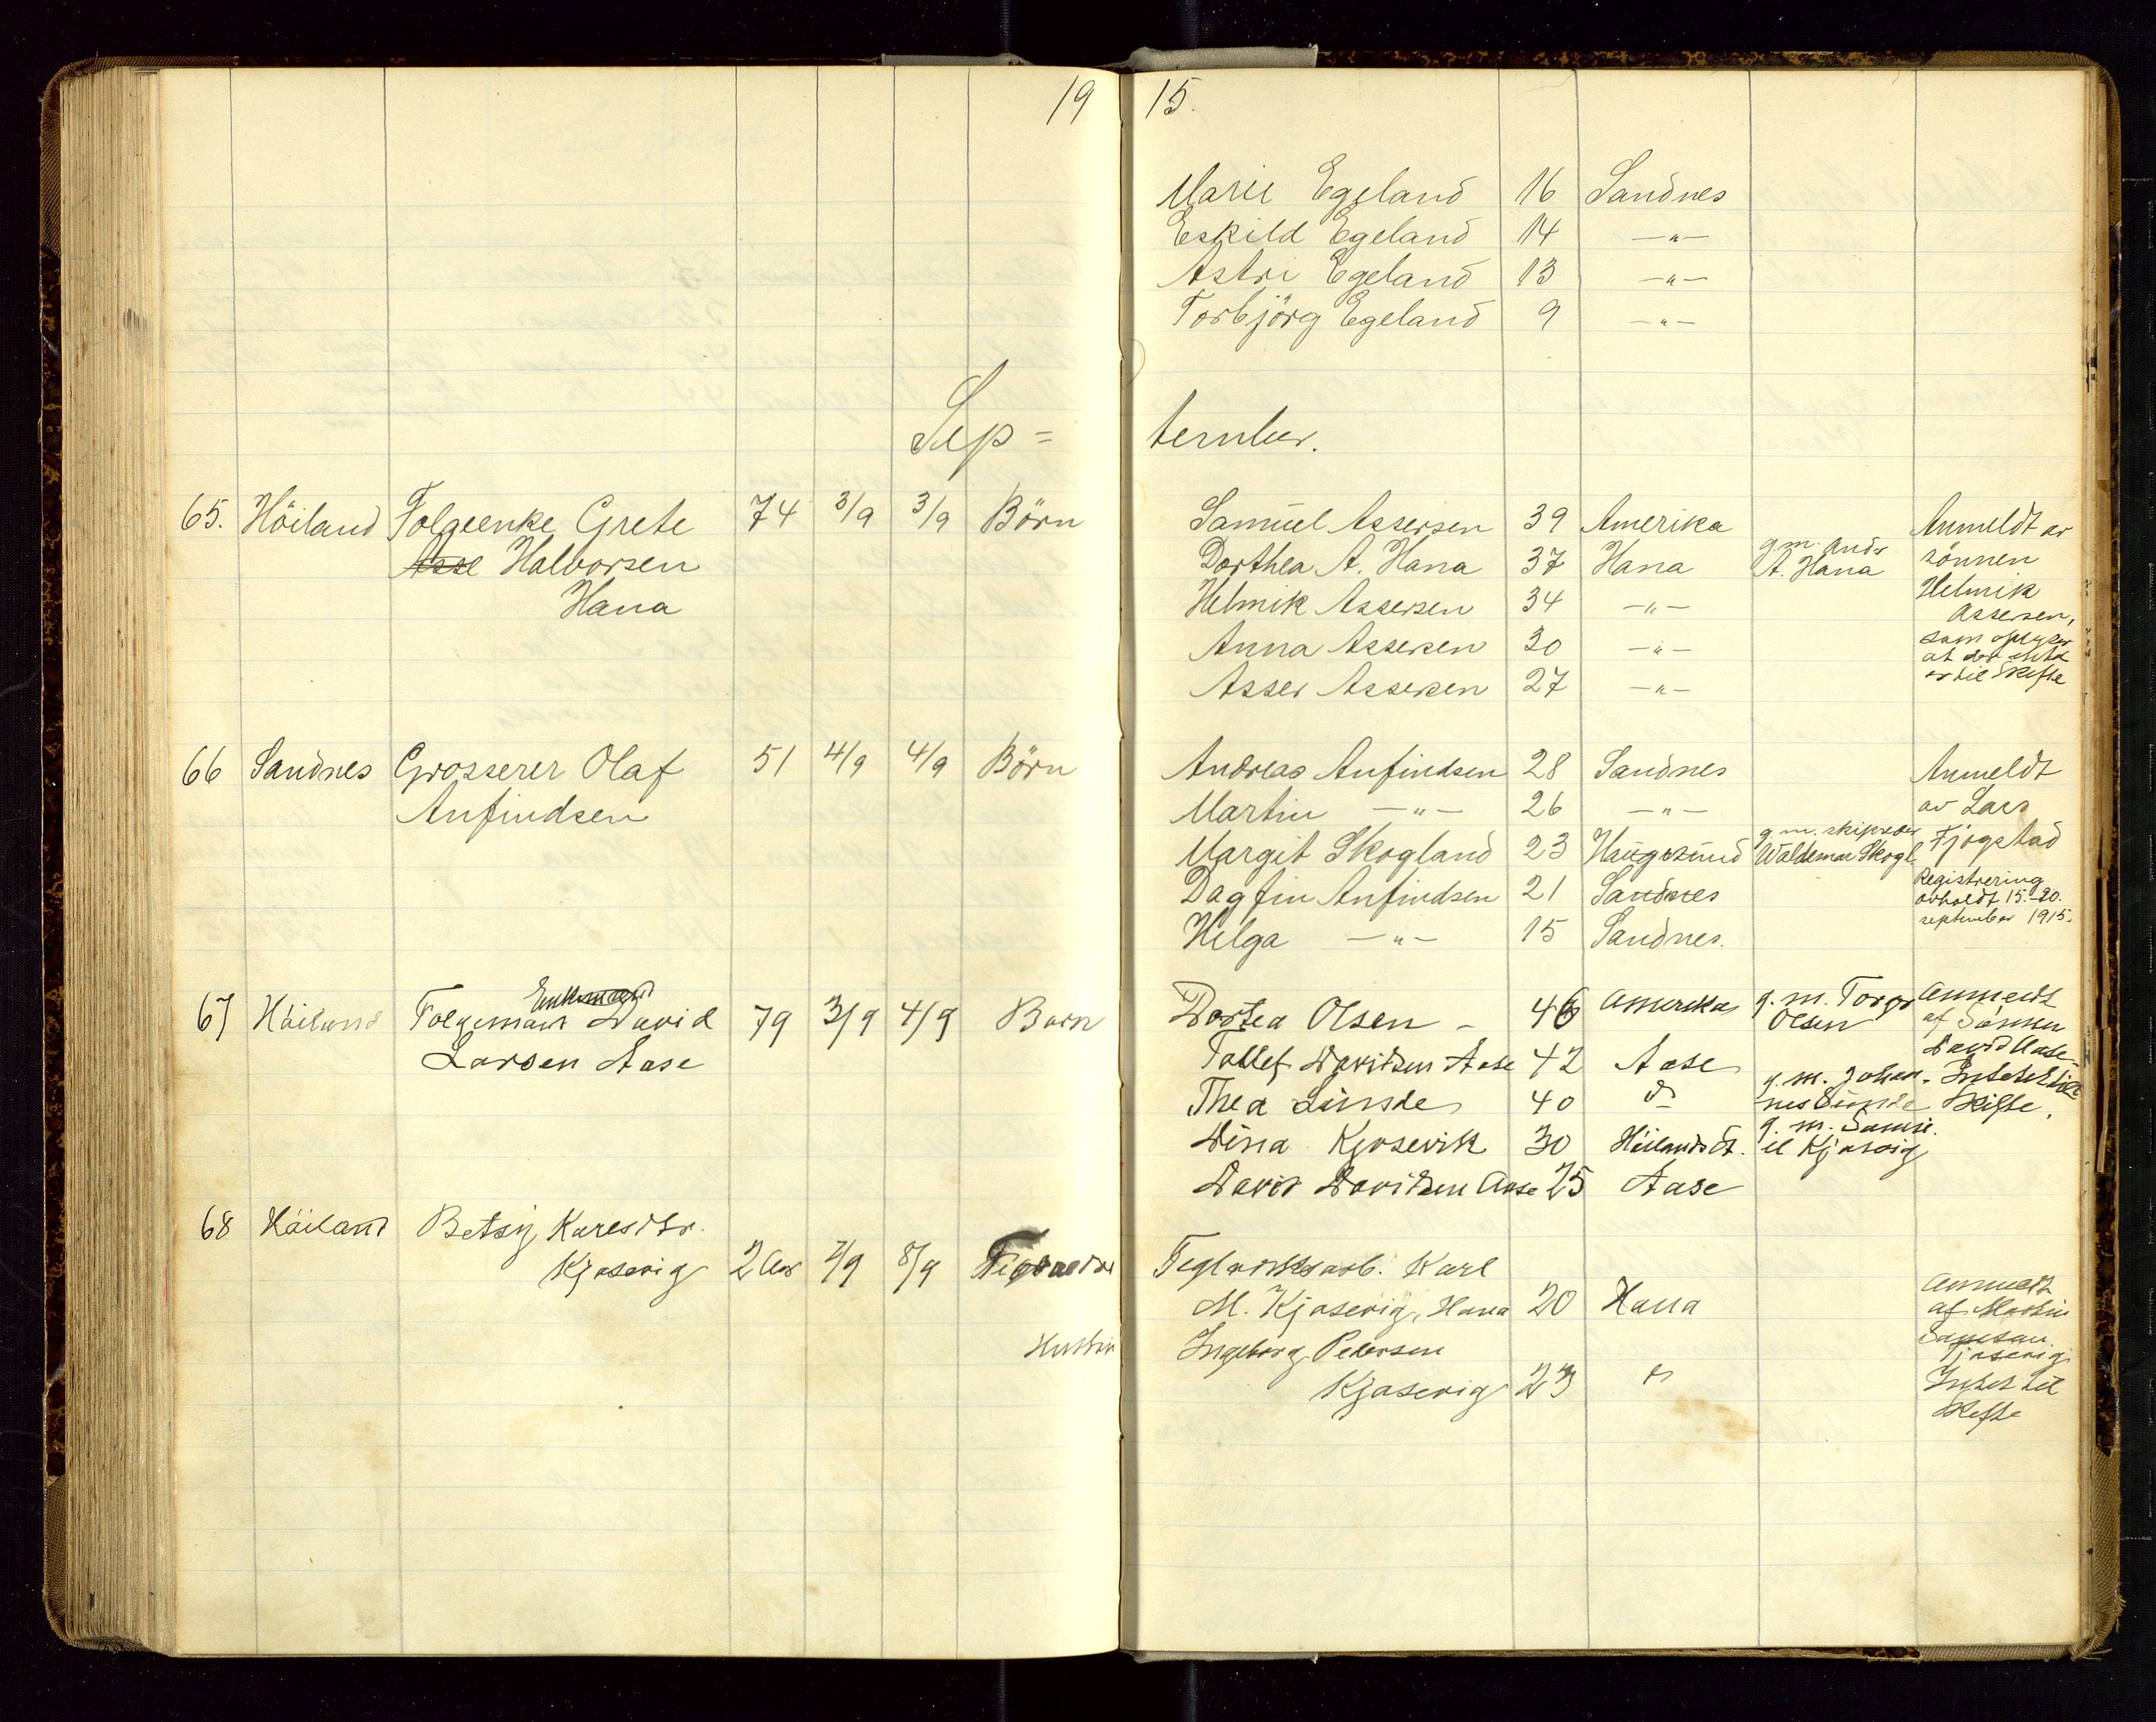 19 15.
Marie Egeland 16 Sandnes
Eskild Egeland 14 —"—
Astri Egeland 13 —"—
Torbjörg Egeland 9 —"—
Sep=
tember.
65. Höiland Folgeenke Grete 74 3/9 3/9 Börn Samuel Assersen 39 Amerika Anmeldt av
Asse Halvorsen Dorthea A. Hana 37 Hana g.m. Andr A. Hana sönnen
Hana Helmik Assersen 34 —"— Helmik
Assersen,
Anna Assersen 30 —"— som oplyser
at der intet
Asser Assersen 27 —"— er til Skifte
66 Sandnes Grosserer Olaf 51 4/9 4/9 Börn Andreas Anfindsen 28 Sandnes Anmeldt
Anfindsen Martin —"— 26 —"— av Lars
Margit Skogland 23 Haugesund g.m. skipsreder Waldemar Skogl Fjogstad
Dagfin Anfindsen 21 Sandnes Registrering
avholdt 15.-20.
Helga —"— 15 Sandnes. september 1915.
Enkemand
67 Häiland Folgemand David 79 3/9 4/9 Barn Dortea Olsen - 46 Amerika g.m. Torger Olsen Anmeldt
af Sönnen
Larsen Aase Tollef Davidsen Aase 42 Aase David Aase
Thea Lunde 40 do g.m. Johan- Intet til
nes Lunde Skifte.
Dina Kjosevik 30 Häilands st. g.m. Samu-
el Kjosvig
David Davidsen Aase 25 Aase
68 Häiland Betsy Karlsdtr.
Kjosevig 2 Aar 7/9 8/9 Teglverksarb. Karl
M. Kjosevig, Hana 20 Hana Anmeldt
af Martin
Hustru Ingeborg Pedersen Samson
Kjosevig 23 " Kjosevig
Intet til
Skifte